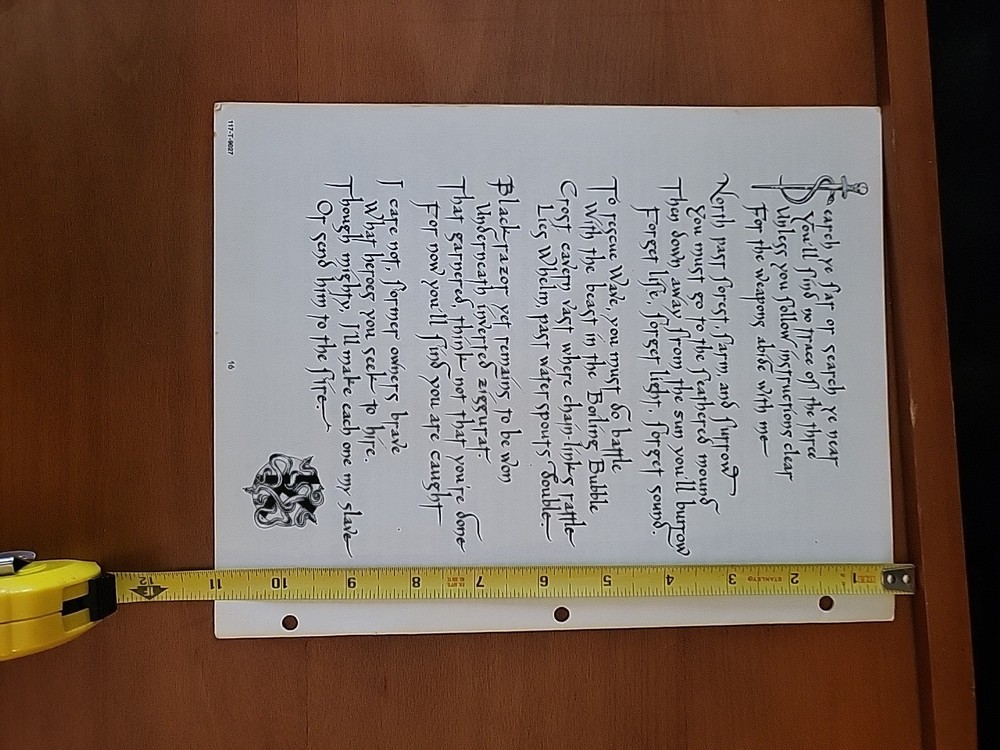 Search ye far or search ye near
You'll find no trace of the three
Unless you follow instructions clear
For the weapons abide with me
North past forest, farm, and furrow
You must go to the feathered mound
Then down away from the sun you'll burrow
Forget life, forget light, forget sound.
To rescue Wave, you must do battle
With the beast in the Boiling Bubble
Crost cavern vast where chain-links rattle
Lies Whelm, past water spouts double.
Blackrazor yet remains to be won
Underneath inverted ziggurat.
That garnered, think not that you're done
For now you'll find you are caught
I care not, former owners brave
What heroes you seek to hire.
Though mighty, I'll make each one my slave
Or send him to the fire.
16
117-T-9027
1 2 3 4 5 6 7 8 9 10 11 12
STANLEY
1F